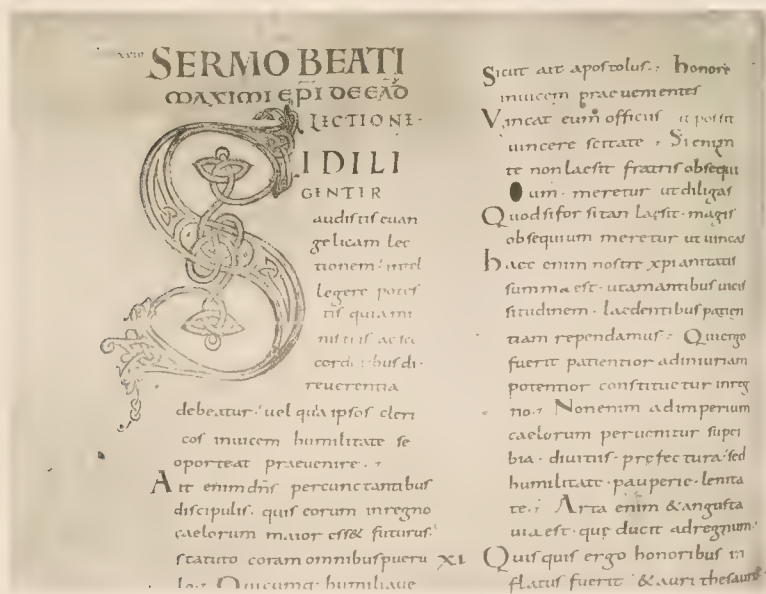 SERMO BEATI
MAXIMI EPI DE EAD
LECTIONE·
SI DILI
GENTER
audistis euan
gelicam lec
tionem: intel
legere potes
tis quia mi
nistris ac sa
cordibus di·
reuerentia
debeatur: uel quia ipsos cleri
cos inuicem humilitate se
oporteat praeuenire.
Ait enim dns percunctantibus
discipulis. quis eorum in regno
caelorum maior ess& futurus:
statuto coram omnibus pueru
lo. Quicumq· humiliaue
Sicut ait apostolus. honore
inuicem praeuenientes
Vincat eum officiis
uincere
te non laesit fratris obsequi
um· meretur ut diligas
Quod si forsitan laesit· magis
obsequium meretur ut uincas
haec enim nostre xpianitatis
summa est· ut amantibus uicis
situdinem· laedentibus patien
tiam rependamus: Qui ergo
fuerit patientior ad iniuriam
potentior constituetur in reg
no. Non enim ad imperium
caelorum peruenitur super
bia· diuitiis· prefectura· sed
humilitate· pauperie· lenita
te. Arta enim & angusta
uia est· que ducit ad regnum·
XI Quisquis ergo honoribus in
flatus fuerit & auri thesauris